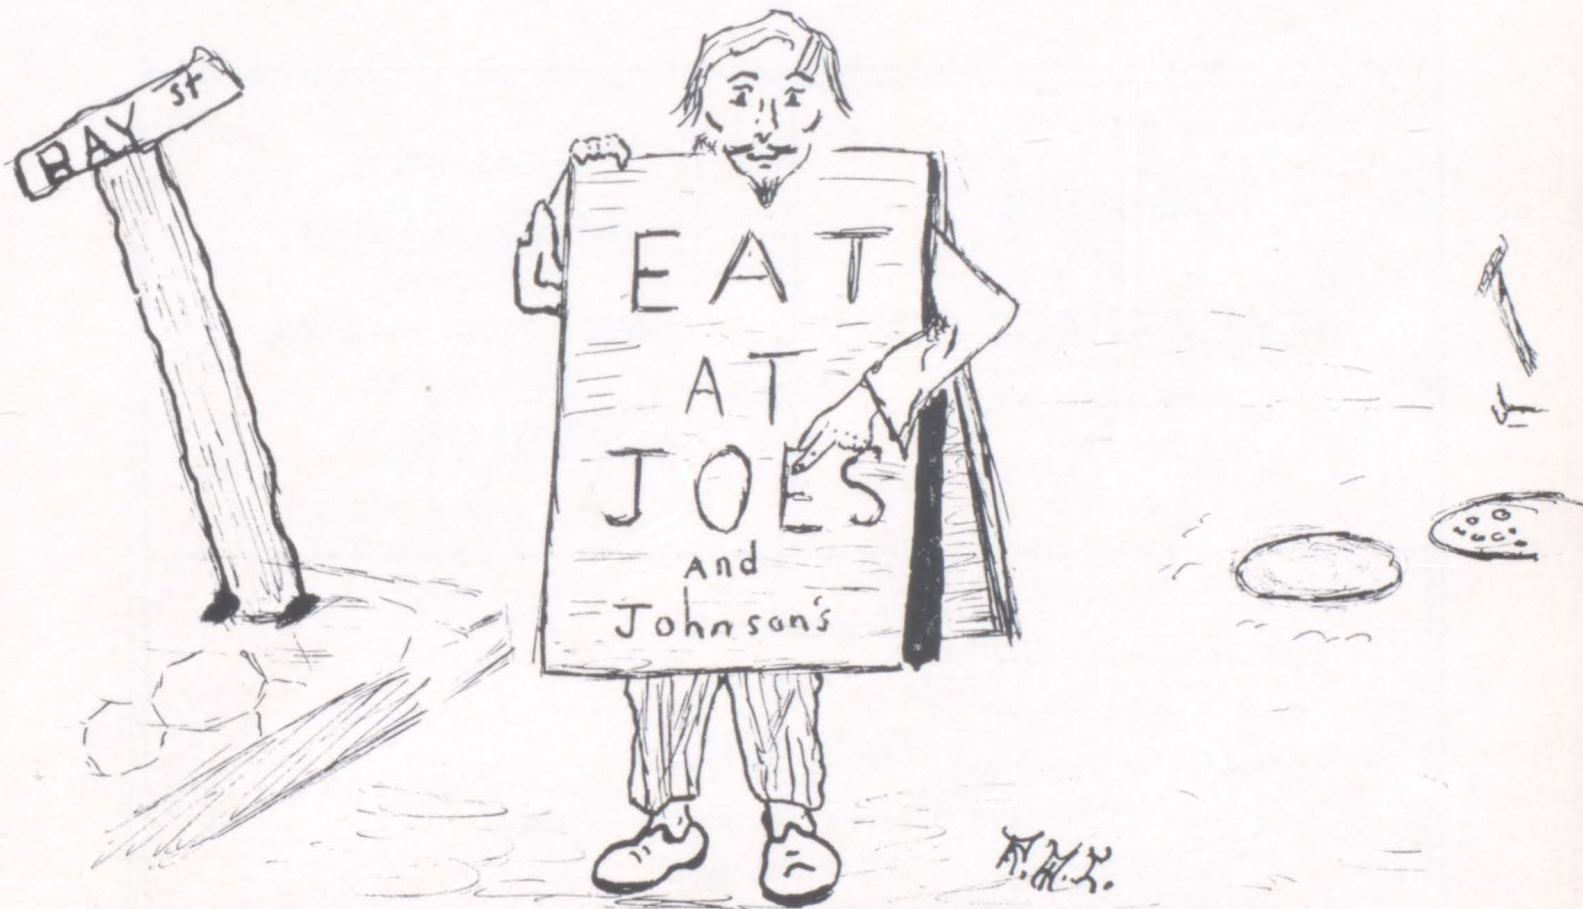 BAY st
EAT
AT
JOES
And
Johnson's